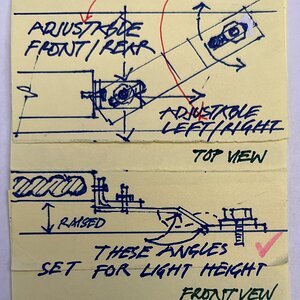 ADJUSTABLE
FRONT/REAR
ADJUSTABLE
LEFT/RIGHT
TOP VIEW
RAISED
THESE ANGLES
SET FOR LIGHT HEIGHT
FRONT VEW